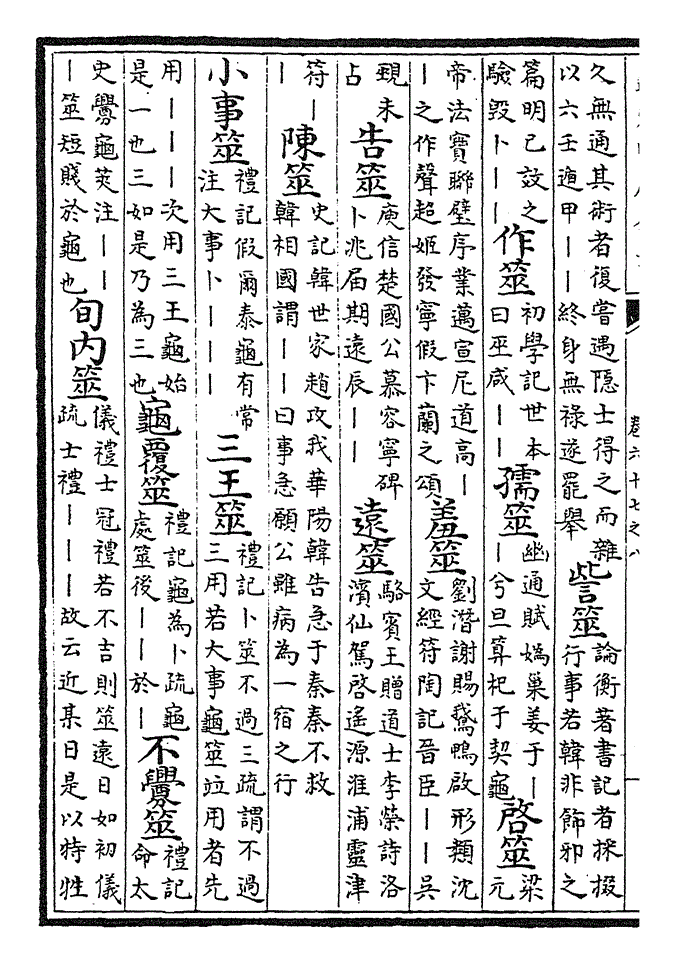 久無通其術者復嘗遇隱士得之而雜
以六壬遁甲——終身無祿遂罷舉
訾筮
論衡著書記者採掇
行事若韓非飾邪之
篇明已效之
驗毀卜——
作筮
初學記世本
曰巫咸——
孺筮
幽通賦媯巢姜于—
—兮旦算杞于契龜
啓筮
梁
元
帝法寶聯璧序業邁宣尼道高—
—之作聲超姬發寧假卞蘭之頌
羞筮
劉潛謝賜鵝鴨啟形類沈
文經符記晉臣——吳
覡未
占
告筮
庾信楚國公慕容寧碑
卜兆屆期遠辰——
遠筮
駱賓王贈道士李榮詩洛
濱仙駕啓遙源淮浦靈津
符—
—
陳筮
史記韓世家趙攻我華陽韓告急于秦秦不救
韓相國謂——曰事急願公雖病為一宿之行
小事筮
禮記假爾泰龜有常
注大事卜———
三王筮
禮記卜筮不過三疏謂不過
三用若大事龜筮竝用者先
用———次用三王龜始
是一也三如是乃為三也
龜覆筮
禮記龜為卜疏龜
處筮後——於—
不釁筮
禮記
命太
史釁龜筴注——
—筮短賤於龜也
旬內筮
儀禮士冠禮若不吉則筮遠日如初儀
疏士禮———故云近某日是以特牲